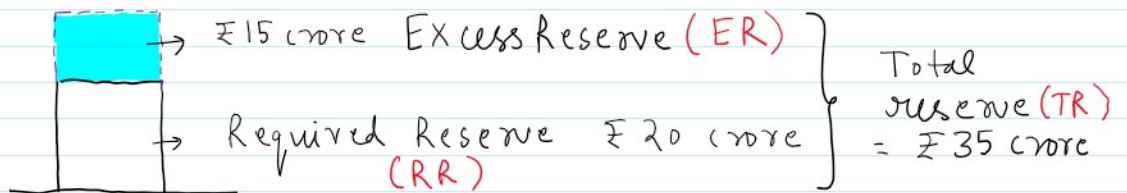 ₹15 crore Excess Reserve (ER)
Required Reserve ₹20 crore
(RR)
Total
reserve (TR)
= ₹35 crore